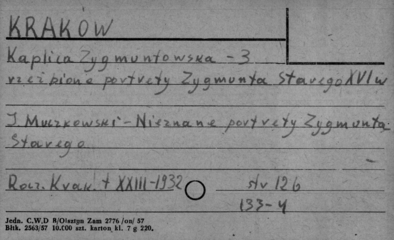 KRAKÓW
Kaplica Zygmuntowska - 3
rzeźbione portrety Zygmunta Starego XVI w
J. Muczkowski - Nieznane portrety Zygmunta
Starego
Rocz. Krak. t XXIII - 1932 str 126
133-4
Jedn. C.W.D 8/Olsztyn Zam 2776 /on/ 57
Bibk. 2563/57 10.000 szt. karton kl. 7 g 220.